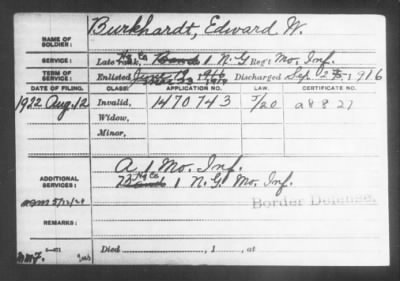 NAME OF SOLDIER: Burkhardt, Edward W.
SERVICE: Late rank, Hq Co Band 1 N.G. Reg't Mo. Inf.
TERM OF SERVICE: Enlisted June 1916 Discharged Sep 25 1916
DATE OF FILING. CLASS. APPLICATION NO. LAW. CERTIFICATE NO.
1922 Aug. 12 Invalid, 1470743 a8827
Widow,
Minor,
A 1 Mo. Inf.
ADDITIONAL SERVICES: Hq Co. Band 1 N.G. Mo. Inf.
Border Defense.
REMARKS:
Died , 1 , at